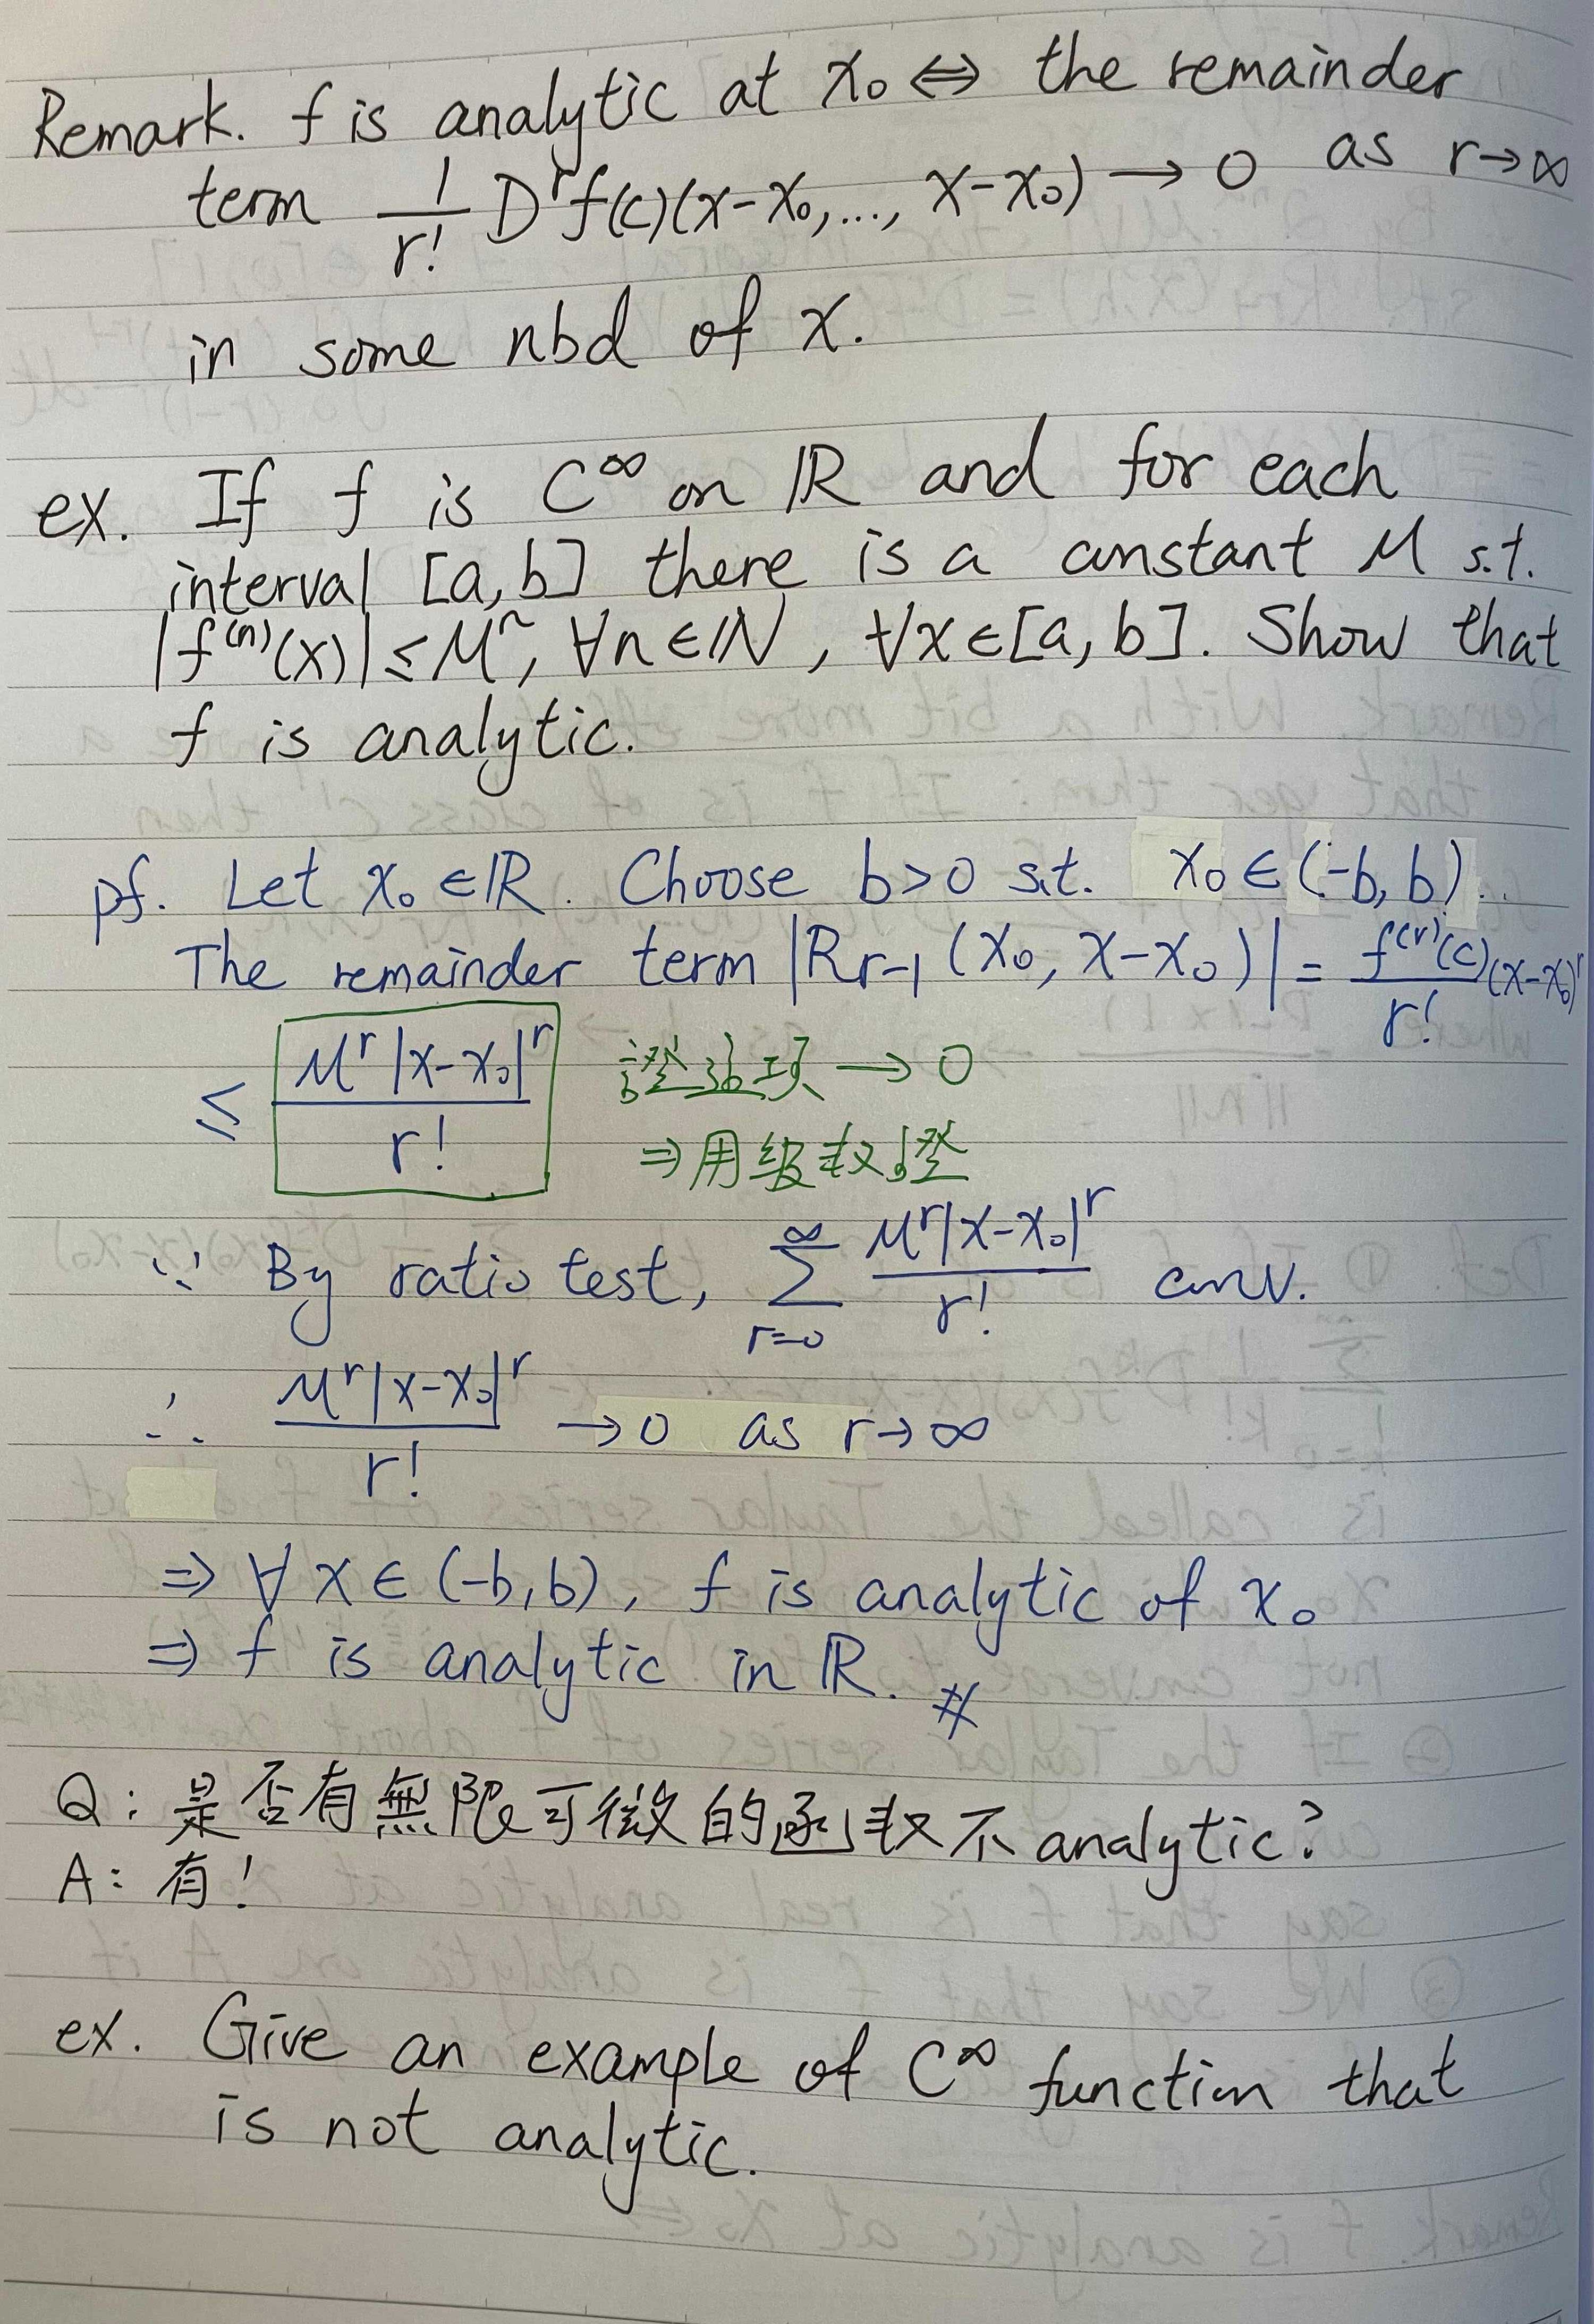 Remark. f is analytic at x₀ ⇔ the remainder
term 1/r! Dʳf(c)(x-x₀,..., x-x₀) → 0 as r→∞
in some nbd of x.
ex. If f is C^∞ on ℝ and for each
interval [a,b] there is a constant M s.t.
|f⁽ⁿ⁾(x)| ≤ Mⁿ, ∀n∈ℕ, ∀x∈[a,b]. Show that
f is analytic.
pf. Let x₀∈ℝ. Choose b>0 s.t. x₀∈(-b,b).
The remainder term |R_{r-1}(x₀, x-x₀)| = f⁽ʳ⁾(c)/r! (x-x₀)ʳ
≤ Mʳ|x-x₀|ʳ/r! 證這項→0
⇒用級數證
∵ By ratio test, ∑_{r=0}^{∞} Mʳ|x-x₀|ʳ/r! conv.
∴ Mʳ|x-x₀|ʳ/r! →0 as r→∞
⇒ ∀x∈(-b,b), f is analytic of x₀
⇒ f is analytic in ℝ. #
Q: 是否有無限可微的函數不analytic?
A: 有!
ex. Give an example of C^∞ function that
is not analytic.